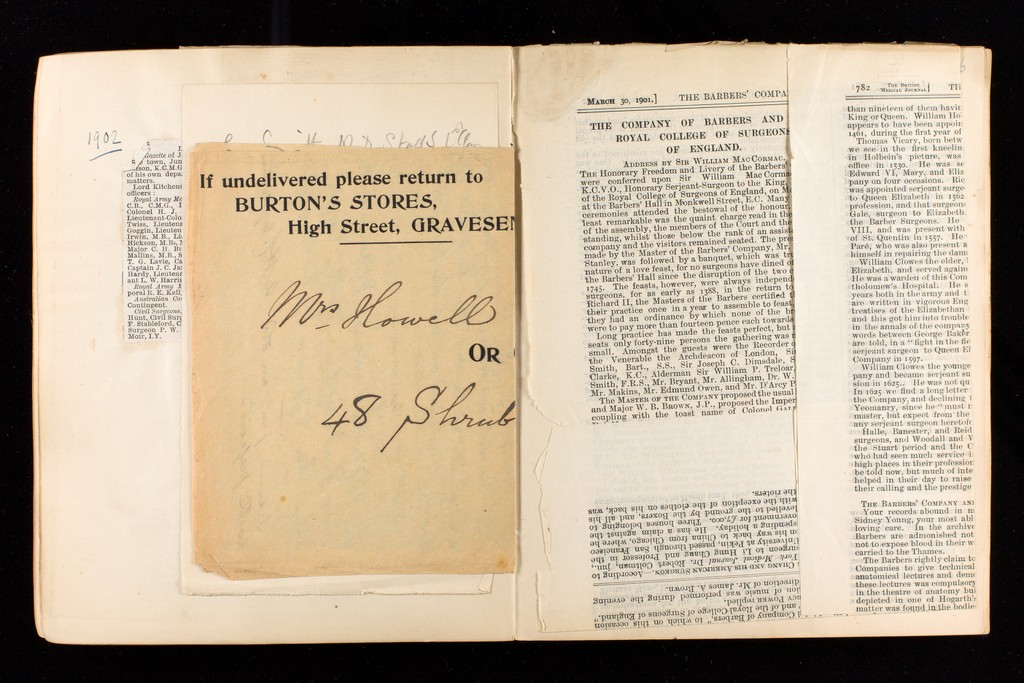 1902
Gazette of J
town, Jun
son, K.C.M.G
of his own depa
matters.
Lord Kitchene
officers:
Royal Army Me
C.B., C.M.G., I
Colonel H. J.
Lieutenant-Colo
Twiss, Lieutena
Goggin, Lieuten
Irwin, M.B., Li
Hickson, M.B.,
Major C. H. Bu
Mallins, M.B., S
T. G. Lavie, Ca
Captain J. C. Ja
Hardy, Lieutena
ant L. W. Harris
Royal Army M
poral E. E. Kell
Australian Co
Contingent.
Civil Surgeons,
Hunt, Civil Surg
F. Stableford, C
Surgeon P. W.
Moir, I.Y.
If undelivered please return to
BURTON'S STORES,
High Street, GRAVESEN
Mrs Howell
OR
48 Shrub
MARCH 30, 1901.] THE BARBERS' COMPA
THE COMPANY OF BARBERS AND
ROYAL COLLEGE OF SURGEONS
OF ENGLAND.
ADDRESS BY SIR WILLIAM MAC CORMAC.
THE Honorary Freedom and Livery of the Barbers'
were conferred upon Sir William Mac Cormac
K.C.V.O., Honorary Serjeant-Surgeon to the King,
of the Royal College of Surgeons of England, on M
at the Barbers' Hall in Monkwell Street, E.C. Many
ceremonies attended the bestowal of the honour,
least remarkable was the quaint charge read in the
of the assembly, the members of the Court and the
standing, whilst those below the rank of an assist
company and the visitors remained seated. The pre
made by the Master of the Barbers' Company, Mr.
Stanley, was followed by a banquet, which was tru
nature of a love feast, for no surgeons have dined o
the Barbers' Hall since the disruption of the two c
1745. The feasts, however, were always independ
surgeons, for as early as 1388, in the return to
Richard II, the Masters of the Barbers certified t
their practice once in a year to assemble to feast,
they had an ordinance by which none of the br
were to pay more than fourteen pence each towards
Long practice has made the feasts perfect, but
seats only forty-nine persons the gathering was n
small. Amongst the guests were the Recorder o
the Venerable the Archdeacon of London, Si
Smith, Bart., S.S., Sir Joseph C. Dimsdale, S
Clarke, K.C., Alderman Sir William P. Treloar,
Smith, F.R.S., Mr. Bryant, Mr. Allingham, Dr. W.
Mr. Makins, Mr. Edmund Owen, and Mr. D'Arcy P
The MASTER OF THE COMPANY proposed the usual
and Major W. B. BROWN, J.P., proposed the Imper
coupling with the toast name of Colonel GALE
Company of Barbers," to which on this occasion
and of the Royal College of Surgeons of England."
CY POWER replied.
ion of music was performed during the evening
direction of Mr. James A. Brown.
CHANG AND HIS AMERICAN SURGEON.—According to
York Medical Journal Dr. Robert Coltman, jun.,
surgeon to Li Hung Chang and Professor in the
University at Pekin, passed through San Francisco
on his way back to China from Chicago, where he
spending a holiday. He has a claim against the
Government for £7,000. Three houses belonging to
levelled to the ground by the Boxers, and all his
with the exception of the clothes on his back, was
the rioters.
6
782 THE BRITISH MEDICAL JOURNAL] TH
than nineteen of them havin
King or Queen. William Ho
appears to have been appoin
1461, during the first year of
Thomas Vicary, born betw
we see in the first kneelin
in Holbein's picture, was
office in 1530. He was se
Edward VI, Mary, and Eliz
pany on four occasions. Ric
was appointed serjeant surge
to Queen Elizabeth in 1562
profession, and that surgeon
Gale, surgeon to Elizabeth,
the Barber Surgeons. He
VIII, and was present with
of St. Quentin in 1557. He
Paré, who was also present a
himself in repairing the dam
William Clowes the elder,
Elizabeth, and served again
He was a warden of this Com
tholomew's Hospital. He s
years both in the army and t
are written in vigorous Eng
treatises of the Elizabethan
and this got him into trouble
in the annals of the company
words between George Baker
are told, in a "fight in the fie
serjeant surgeon to Queen El
Company in 1597.
William Clowes the younge
pany and became serjeant su
sion in 1625. He was not qu
In 1625 we find a long letter
the Company, and declining t
Yeomanry, since he "must r
master, but expect from the
any serjeant surgeon heretofo
Halle, Banester, and Reid
surgeons, and Woodall and W
the Stuart period and the C
who had seen much service i
high places in their profession
be told now, but much of inte
helped in their day to raise
their calling and the prestige
THE BARBERS' COMPANY AND
Your records abound in m
Sidney Young, your most abl
loving care. In the archive
Barbers are admonished not
not to expose blood in their w
carried to the Thames.
The Barbers rightly claim to
Companies to give technical
anatomical lectures and demo
these lectures was compulsory
in the theatre of anatomy bui
depicted in one of Hogarth's
matter was found in the bodie